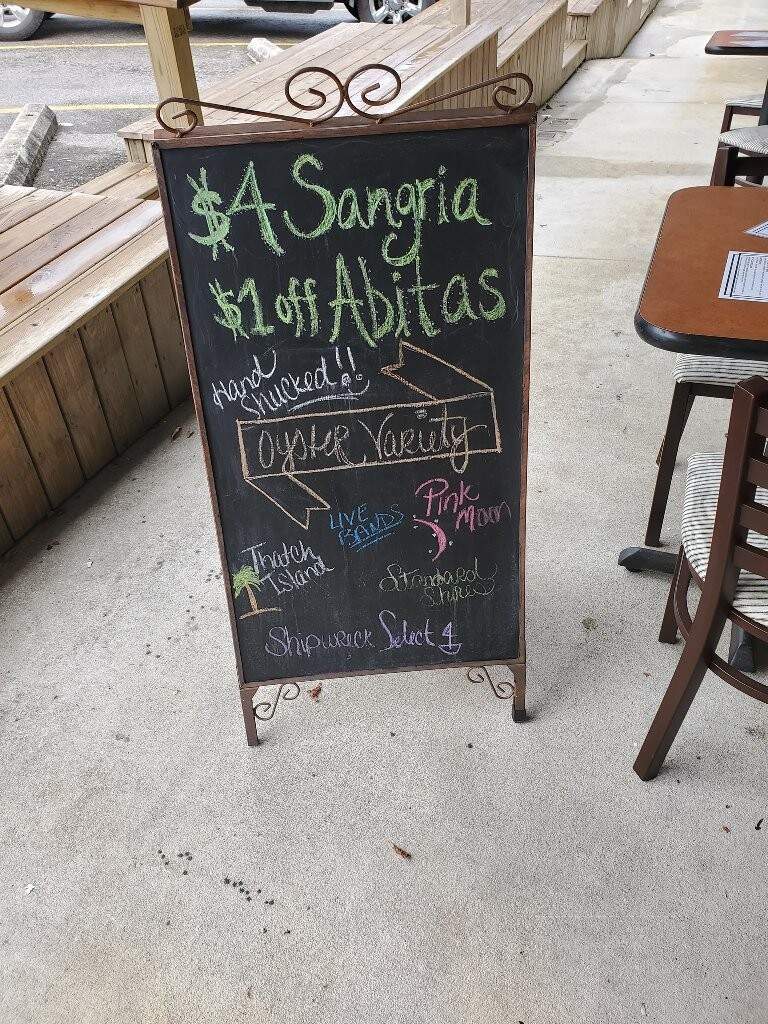 $4 Sangria
$1 off Abitas
Hand
Shucked!!
Oyster Variety
LIVE
BANDS
Pink
Moon
Thatch
Island
Standard
Shore
Shipwreck Select